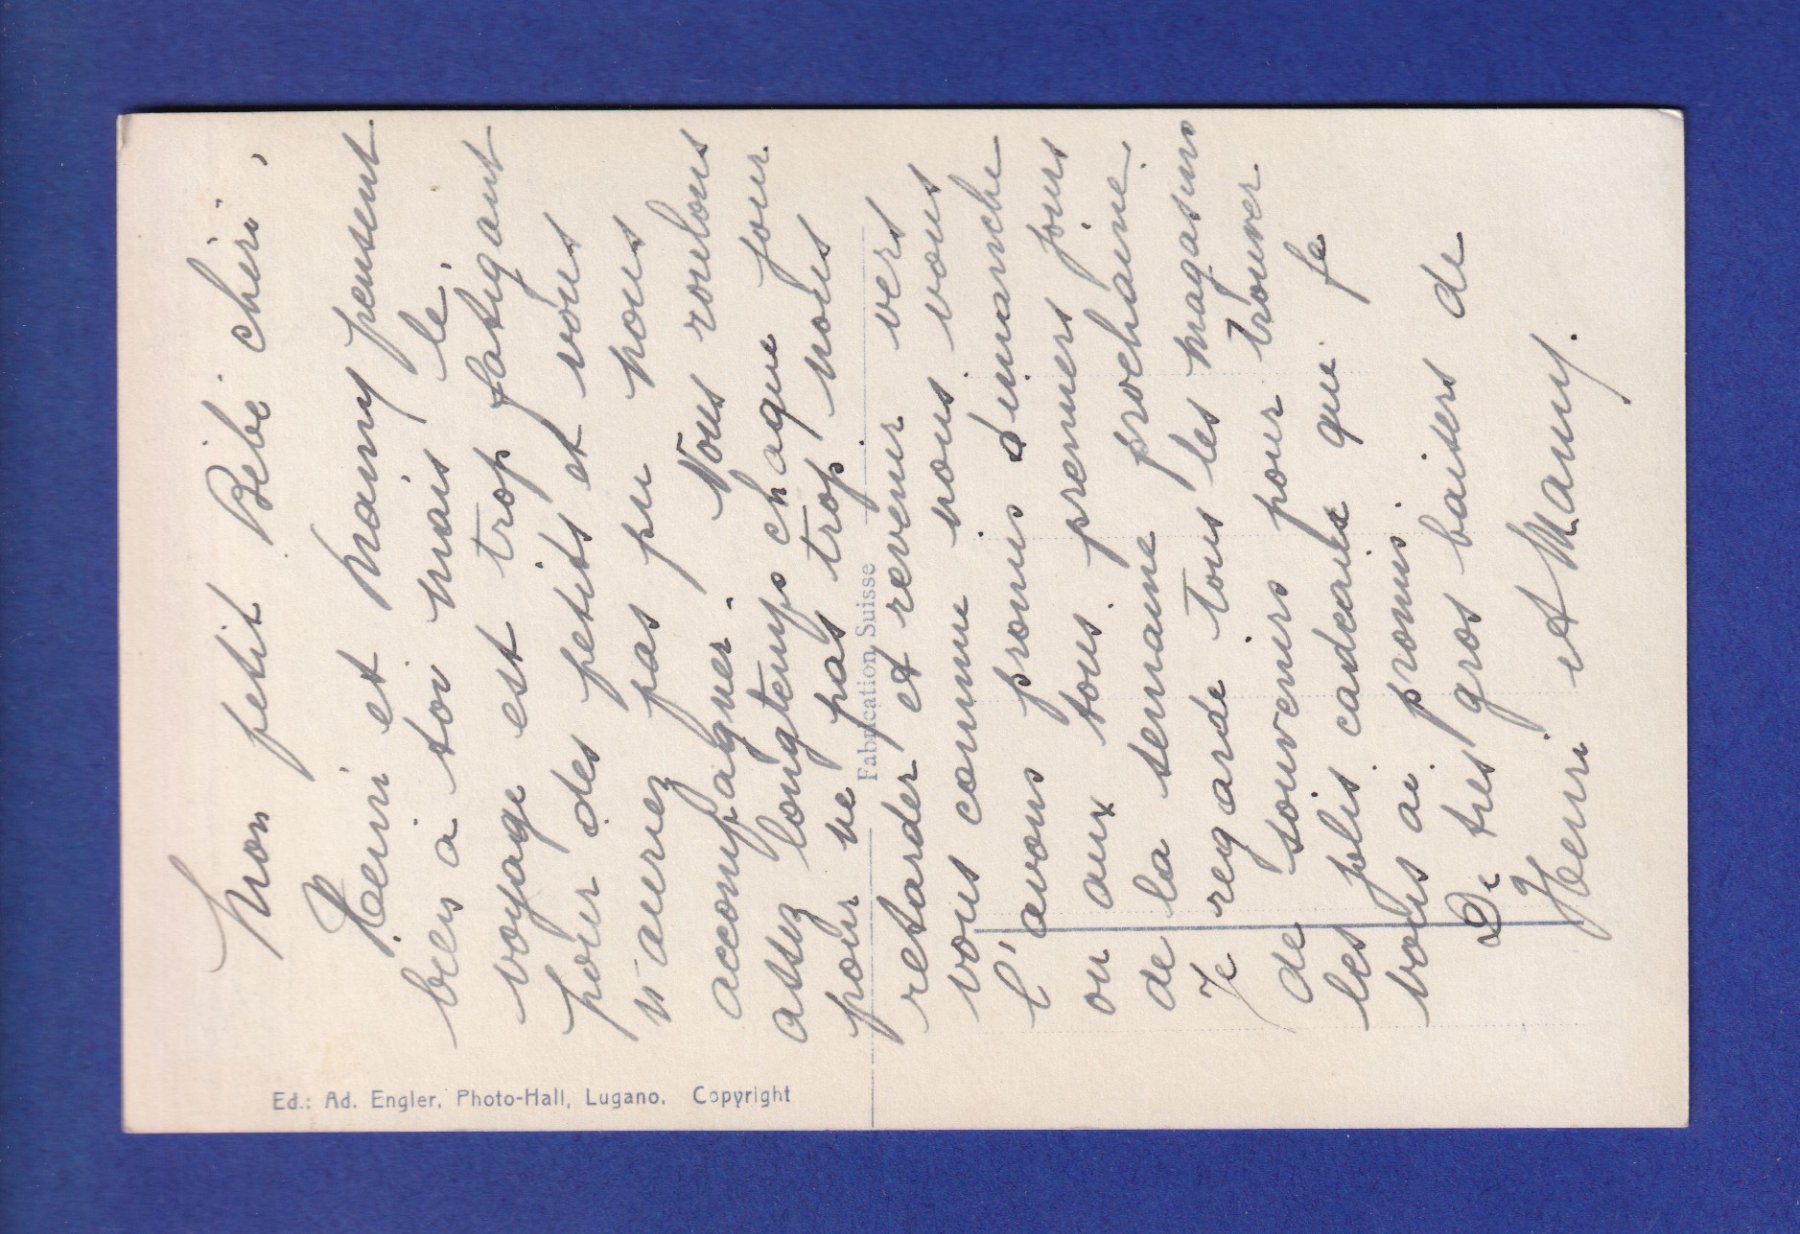 Mon petit Bébé chéri,
Henri et Mamy pensent
bien à toi mais le
voyage est trop fatigant
pour des petits et vous
n'auriez pas pu nous
accompagner. Nous roulons
assez longtemps chaque jour
pour ne pas trop nous
retarder et revenir vers
vous comme nous vous
l'avons promis dimanche
ou aux tous premiers jours
de la semaine prochaine.
Je regarde tous les magasins
de souvenirs pour trouver
les jolis cadeaux que je
vous ai promis.
De très gros baisers de
Henri et Mamy.
Fabrication Suisse
Ed.: Ad. Engler, Photo-Hall, Lugano. Copyright